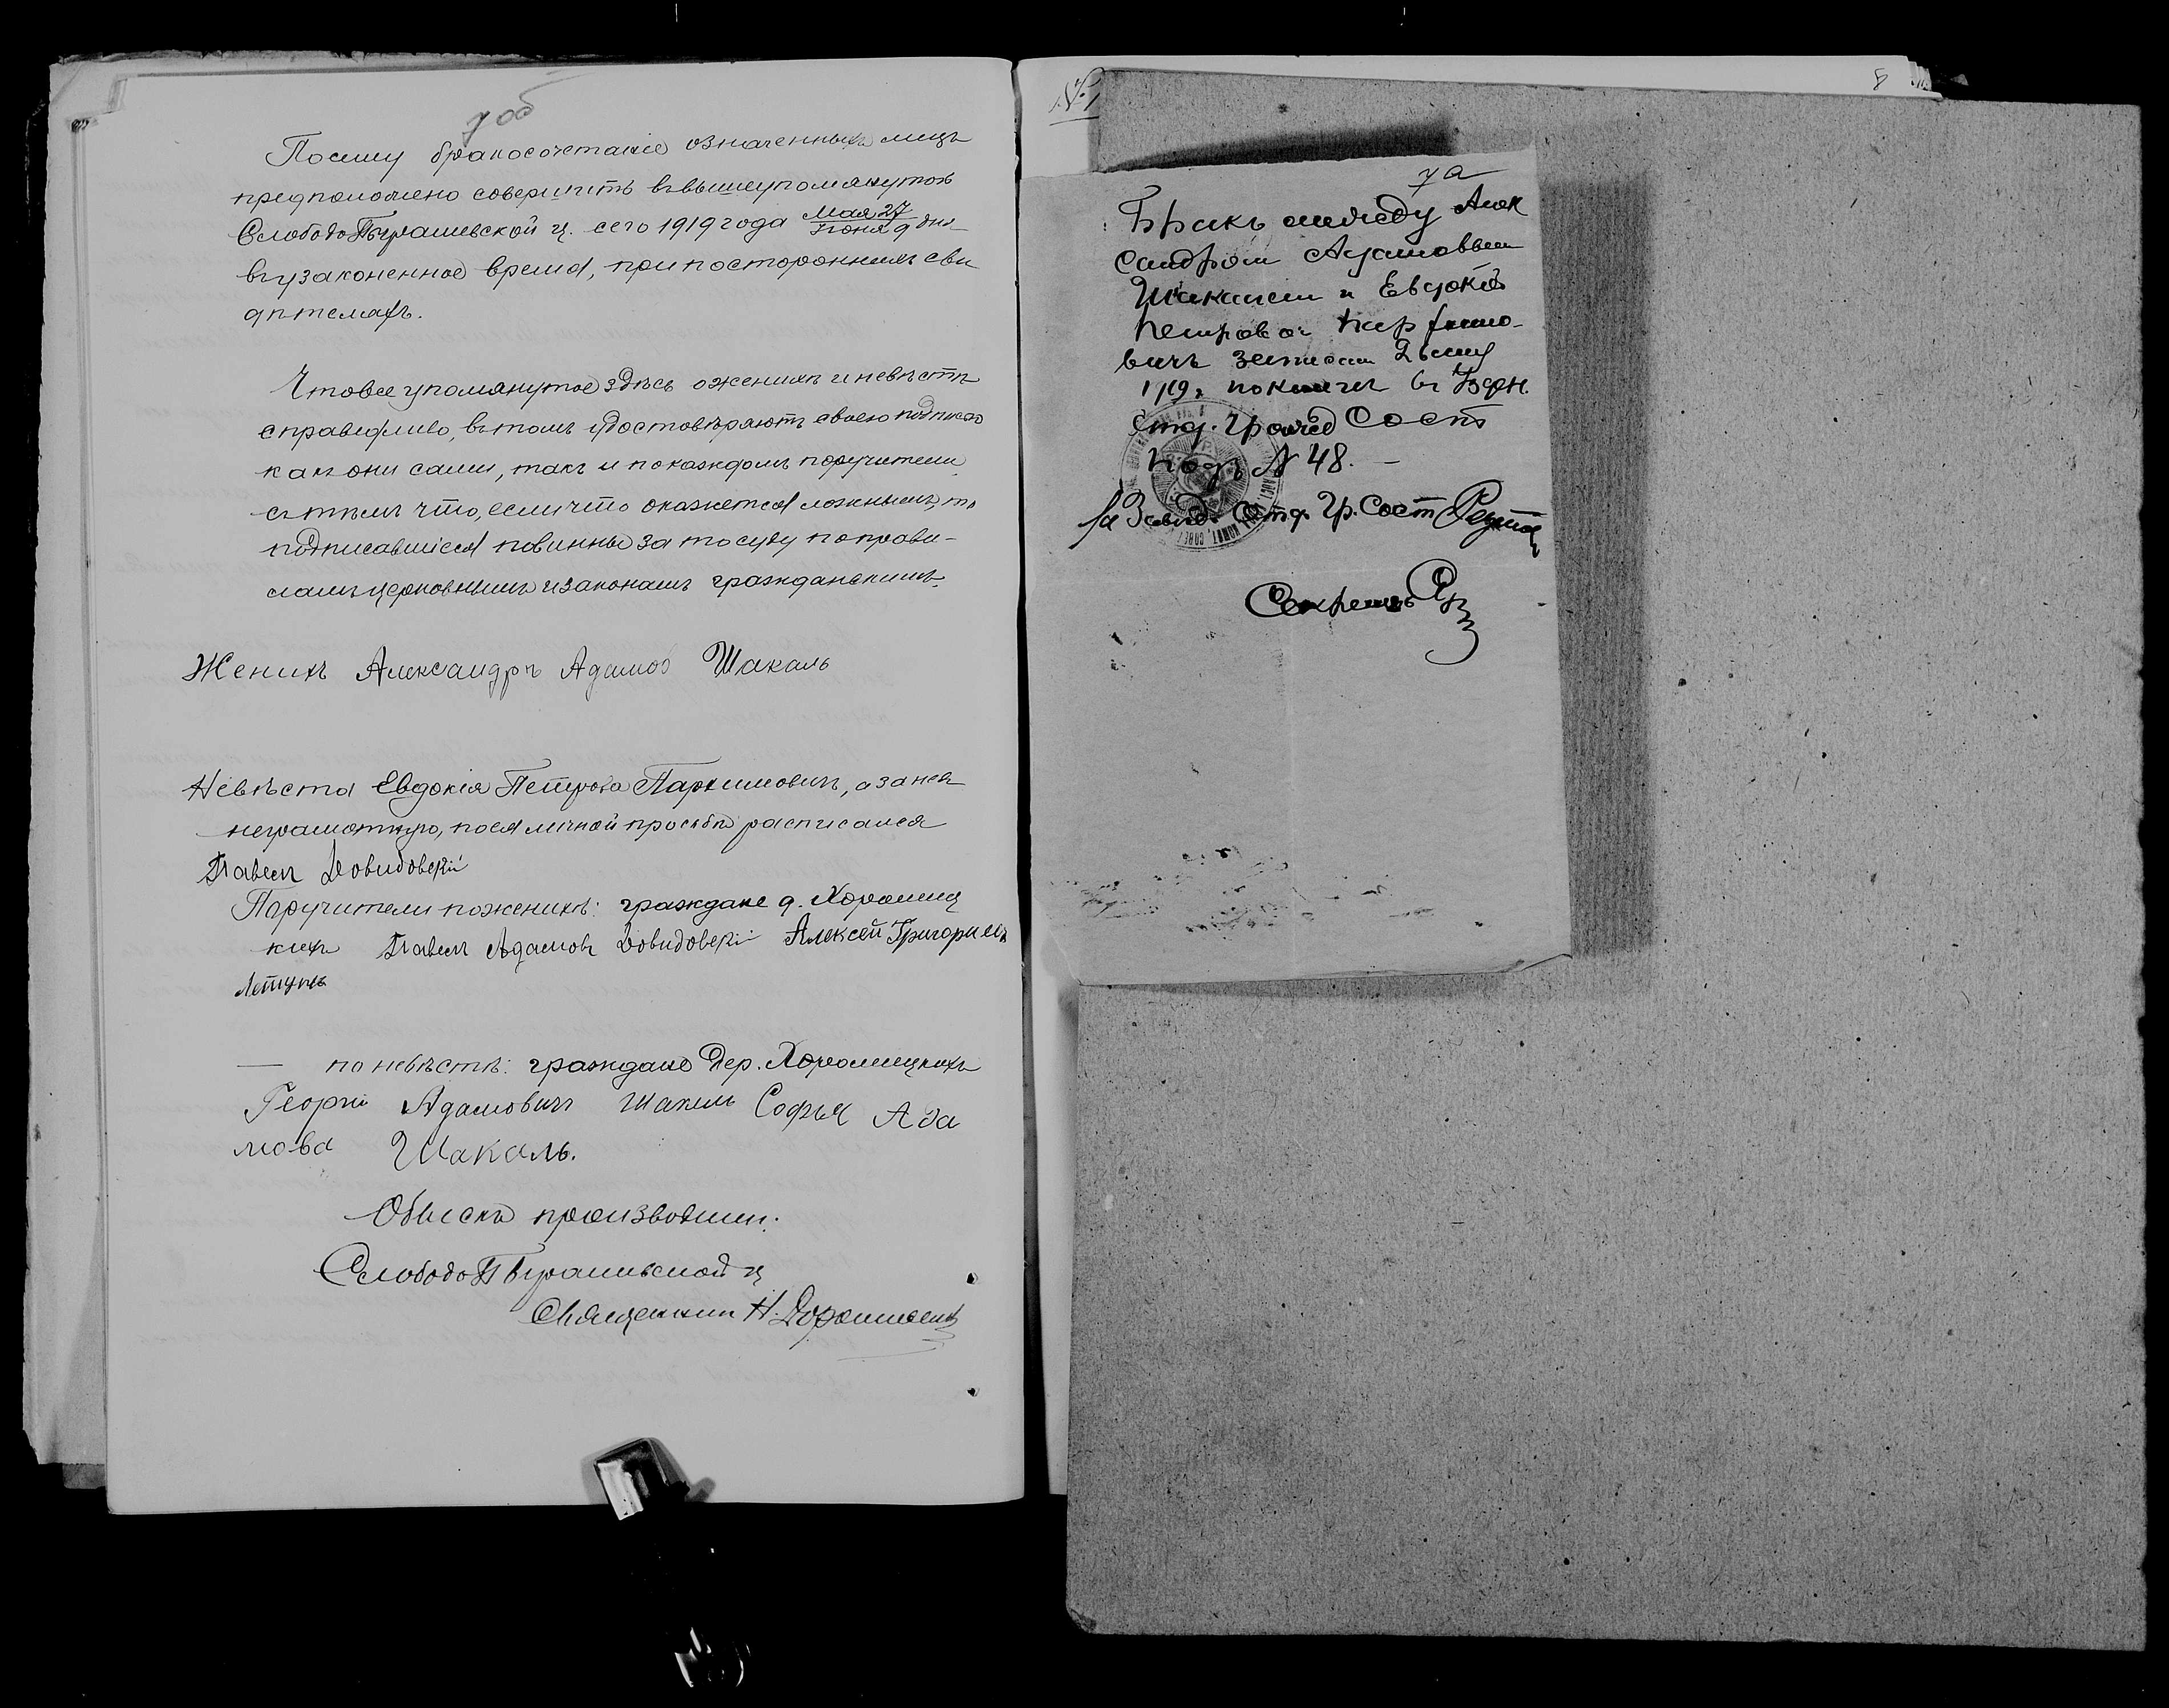 7 об
Посему бракосочетаніе означенныхъ лицъ
предположено совершить въ вышеупомянутой
Слободо Пырашевской ц. сего 1919 года Мая 27 / Іюня 9 дня
въ узаконенное время, при постороннихъ сви
дѣтеляхъ.
Что все упомянутое здѣсь о женихѣ и невѣстѣ
справедливо, въ томъ удостовѣряютъ своею подписью
какъ они сами, такъ и по каждомъ поручители
съ тѣмъ что, если что окажется ложнымъ, то
подписавшіеся повинны за то суду по прави-
ламъ церковнымъ и законамъ гражданскимъ.
Женихъ Александръ Адамов Шакаль
Невѣста Евдокія Петрова Пархимовичъ, а за нея
неграмотную, по ея личной просьбѣ росписался
Павелъ Довидовскій
Поручители по женихѣ: граждане д. Хоромиц
кихъ Павелъ Адамовъ Довидовскій Алексей Григориевъ
Летунъ
— по невѣстѣ: граждане дер. Хоромицкихъ
Георгій Адамовичъ Шакаль Софья Ада
мова Шакаль.
Обыскъ производили:
Слободо Пырашевской ц
Священник Н.
№ 1
8
7 а
Бракъ между Алек
сандром Адамовым
Шакалем и Евдокіей
Петровой Пархимо-
вичъ записан
1919 г. по книге въ
Отд. Гражд Сост
подъ № 48. —
За Завѣд. Отд. Гр. Сост
Секретарь